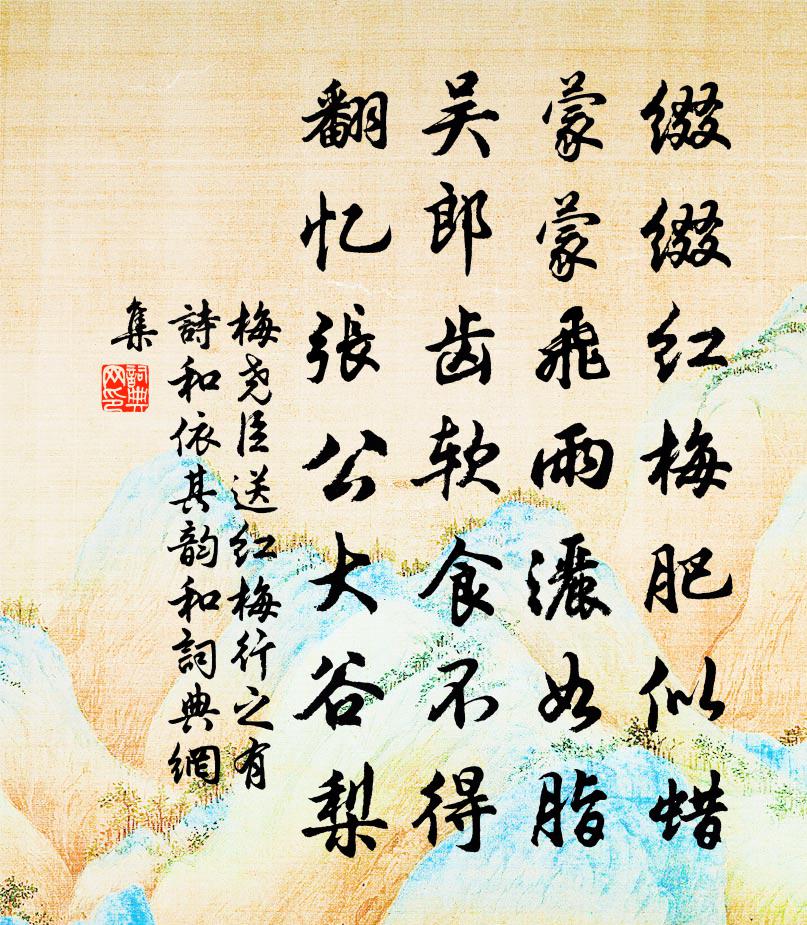 缀缀红梅肥似蜡
蒙蒙飛雨灑如脂
吴郎齿软食不得
翻忆張公大谷梨
梅尧臣送红梅行之有
詩和依其韵和詞典網
集
詞典网印